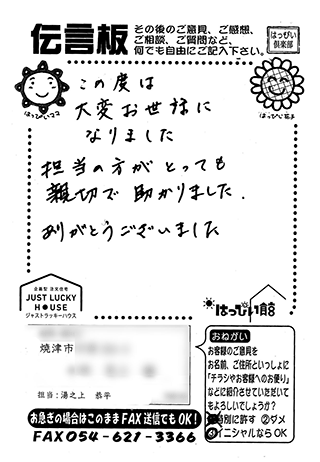 伝言板
その後のご意見、ご感想、
ご相談、ご質問など、
何でも自由にご記入下さい。
はっぴぃ
倶楽部
はっぴぃママ
はっぴぃ花子
この度は
大変お世様に
なりました
担当の方が とっても
親切で 助かりました.
ありがとうございました
企画型 注文住宅
JUST LUCKY
HOUSE
ジャストラッキーハウス
はっぴぃ館
焼津市
担当:湯之上 恭平
おねがい
お客様のご意見を
お名前、ご住所といっしょに
「チラシやお客様へのお便り」
などに紹介させていただいて
もよろしいでしょうか?
特別に許す ②ダメ
イニシャルなら OK
お急ぎの場合はこのままFAX送信でもOK!
FAX 054-627-3366